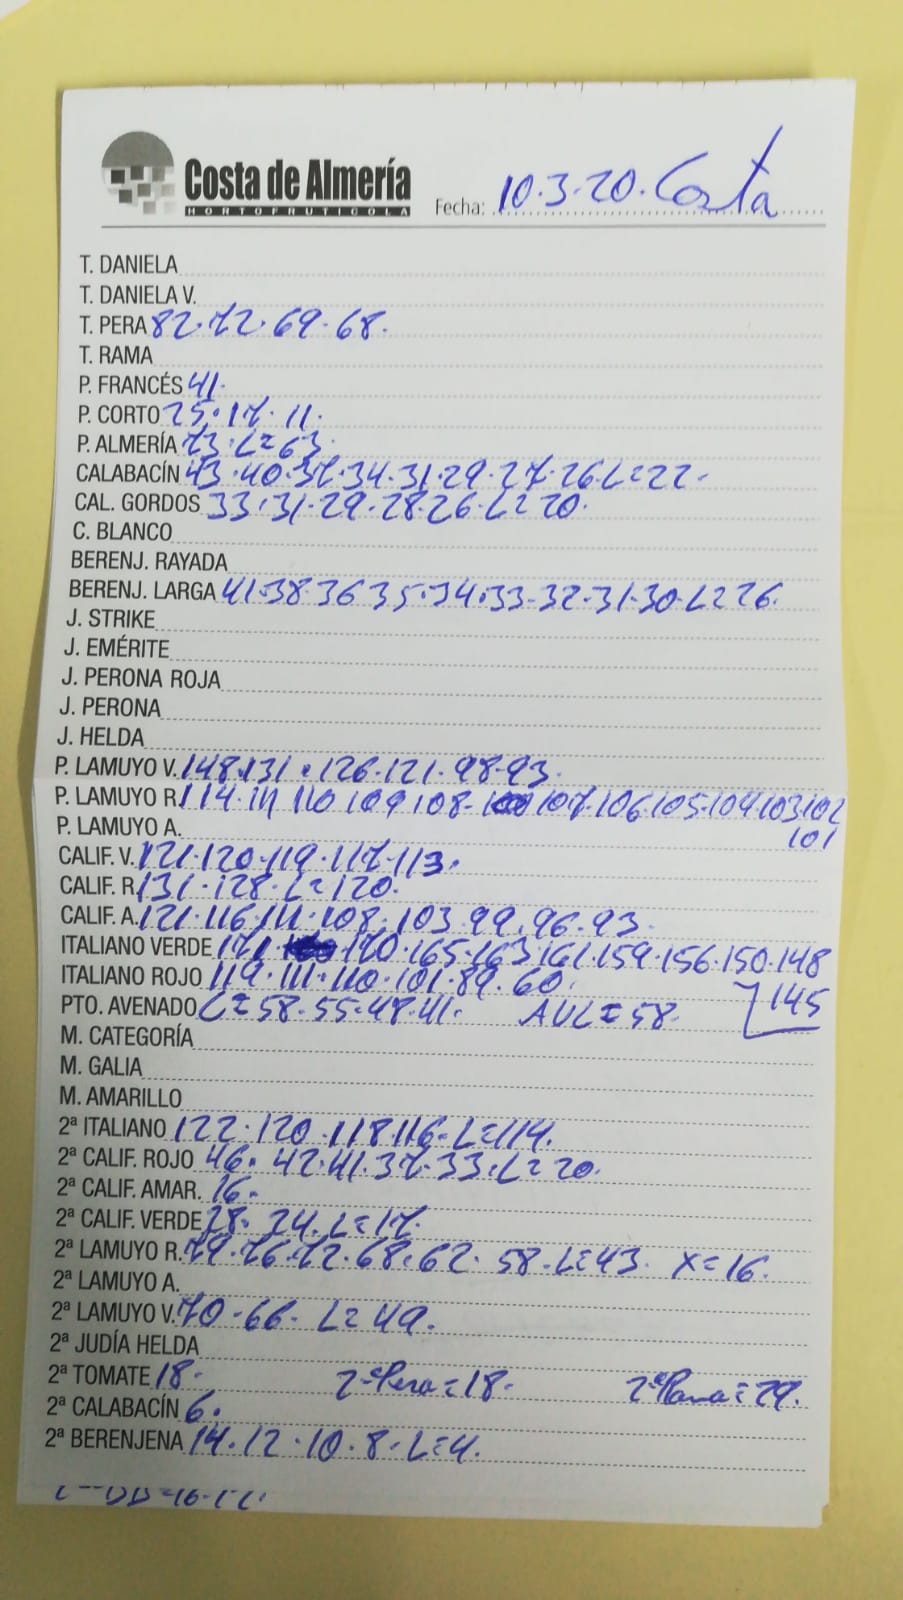 Costa de Almería
HORTOFRUTICOLA
Fecha: 10.3.20. Costa
T. DANIELA
T. DANIELA V.
T. PERA 82.72.69.68.
T. RAMA
P. FRANCÉS 41.
P. CORTO 25.17.11.
P. ALMERÍA 73.L=63.
CALABACÍN 43.40.37.34.31.29.27.26.L=22.
CAL. GORDOS 33.31.29.28.26.L=20.
C. BLANCO
BERENJ. RAYADA
BERENJ. LARGA 41.38.36 35.34.33.32.31.30.L=26.
J. STRIKE
J. EMÉRITE
J. PERONA ROJA
J. PERONA
J. HELDA
P. LAMUYO V. 148.131.126.121.98.93.
P. LAMUYO R. 114.111 110 109 108. 107.106.105.104.103.102
101
P. LAMUYO A.
CALIF. V. 121.120.119.117.113.
CALIF. R. 131.128.L=120.
CALIF. A. 121.116.111.108.103.99.96.93.
ITALIANO VERDE 171. 170.165.163.161.159.156.150.148
145
ITALIANO ROJO 119.111.110.101.89.60.
PTO. AVENADO L=58.55.48.41. AVL=58.
M. CATEGORÍA
M. GALIA
M. AMARILLO
2ª ITALIANO 122.120.118.116.L=114.
2ª CALIF. ROJO 46.42.41.37.33.L=20.
2ª CALIF. AMAR. 16.
2ª CALIF. VERDE 28.24.L=17.
2ª LAMUYO R. 79.76.72.68.62.58.L=43. X=16.
2ª LAMUYO A.
2ª LAMUYO V. 70.66.L=49.
2ª JUDÍA HELDA
2ª TOMATE 18. 2ª Pera=18. 2ª Rama=29.
2ª CALABACÍN 6.
2ª BERENJENA 14.12.10.8.L=4.